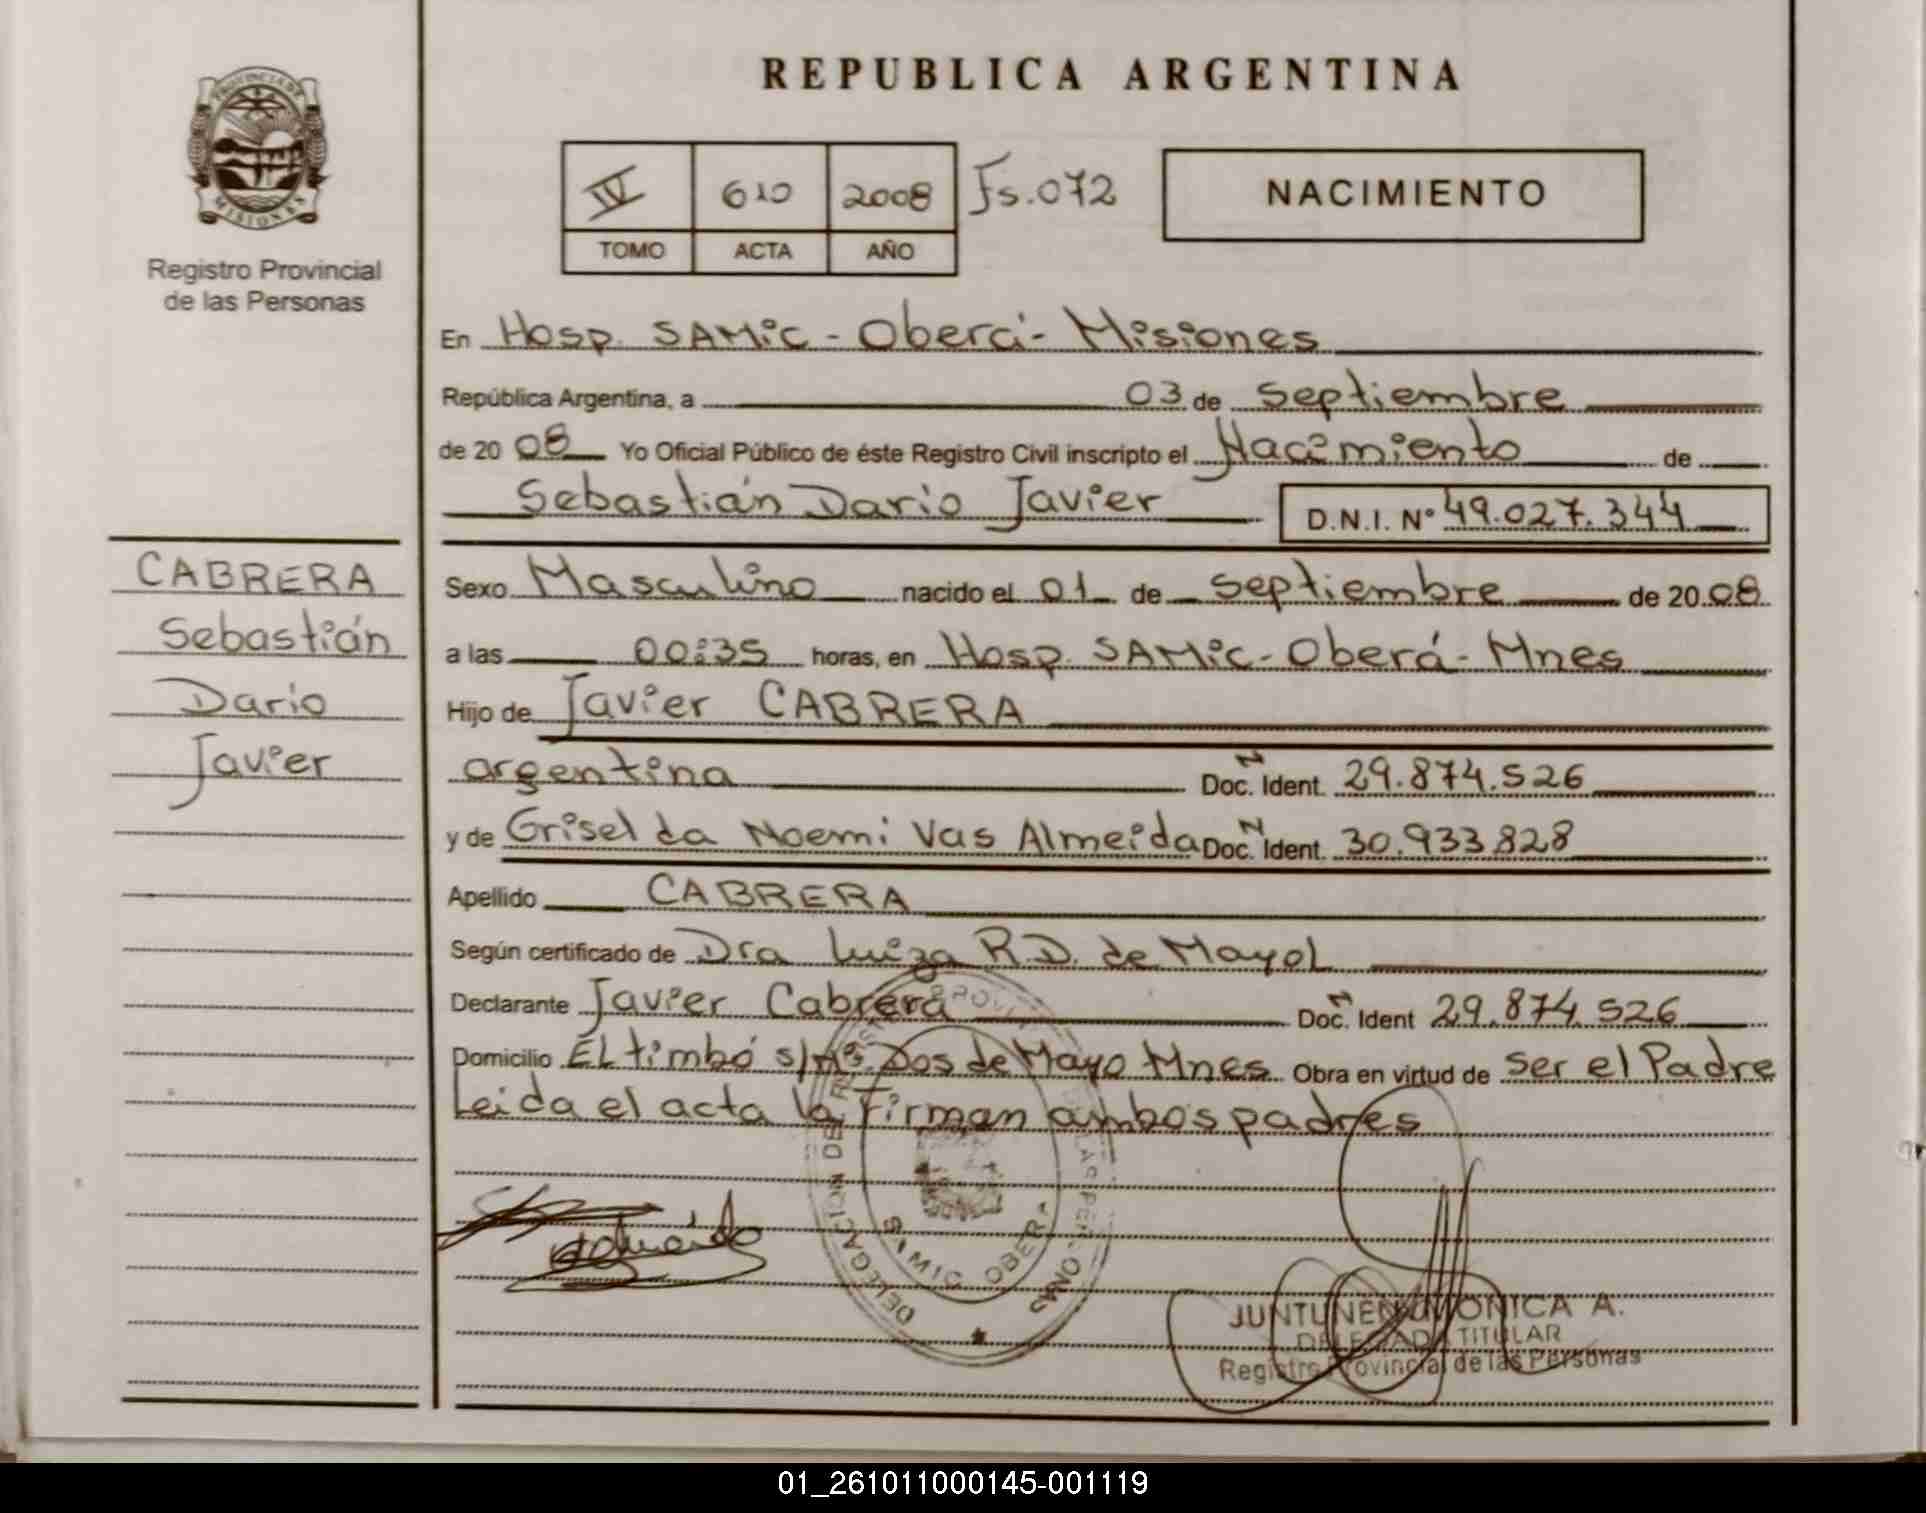 PROVINCIA DE
MISIONES
Registro Provincial
de las Personas
CABRERA
Sebastián
Dario
Javier
REPUBLICA ARGENTINA
IV 610 2008 Fs.072
TOMO ACTA AÑO
NACIMIENTO
En Hosp. SAMic - Oberá - Misiones
República Argentina, a 03 de Septiembre
de 2008 Yo Oficial Público de éste Registro Civil inscripto el Nacimiento de
Sebastián Dario Javier D.N.I. N° 49.027.344
Sexo Masculino nacido el 01 de Septiembre de 2008
a las 00:35 horas, en Hosp. SAMic - Oberá - Mnes
Hijo de Javier CABRERA
argentina Doc. Ident. 29.874.526
y de Griselda Noemi Vas Almeida Doc. Ident. 30.933.828
Apellido CABRERA
Según certificado de Dra Luiza R.D. de Mayol
Declarante Javier Cabrera Doc. Ident 29.874.526
Domicilio El timbó s/nº Dos de Mayo Mnes Obra en virtud de ser el Padre
Leida el acta la Firman ambos padres
DELEGACION DEL REGISTRO PROVINCIAL DE LAS PERSONAS
SAMIC OBERA
JUNTUNEN MONICA A.
DELEGADA TITULAR
Registro Provincial de las Personas
01_261011000145-001119